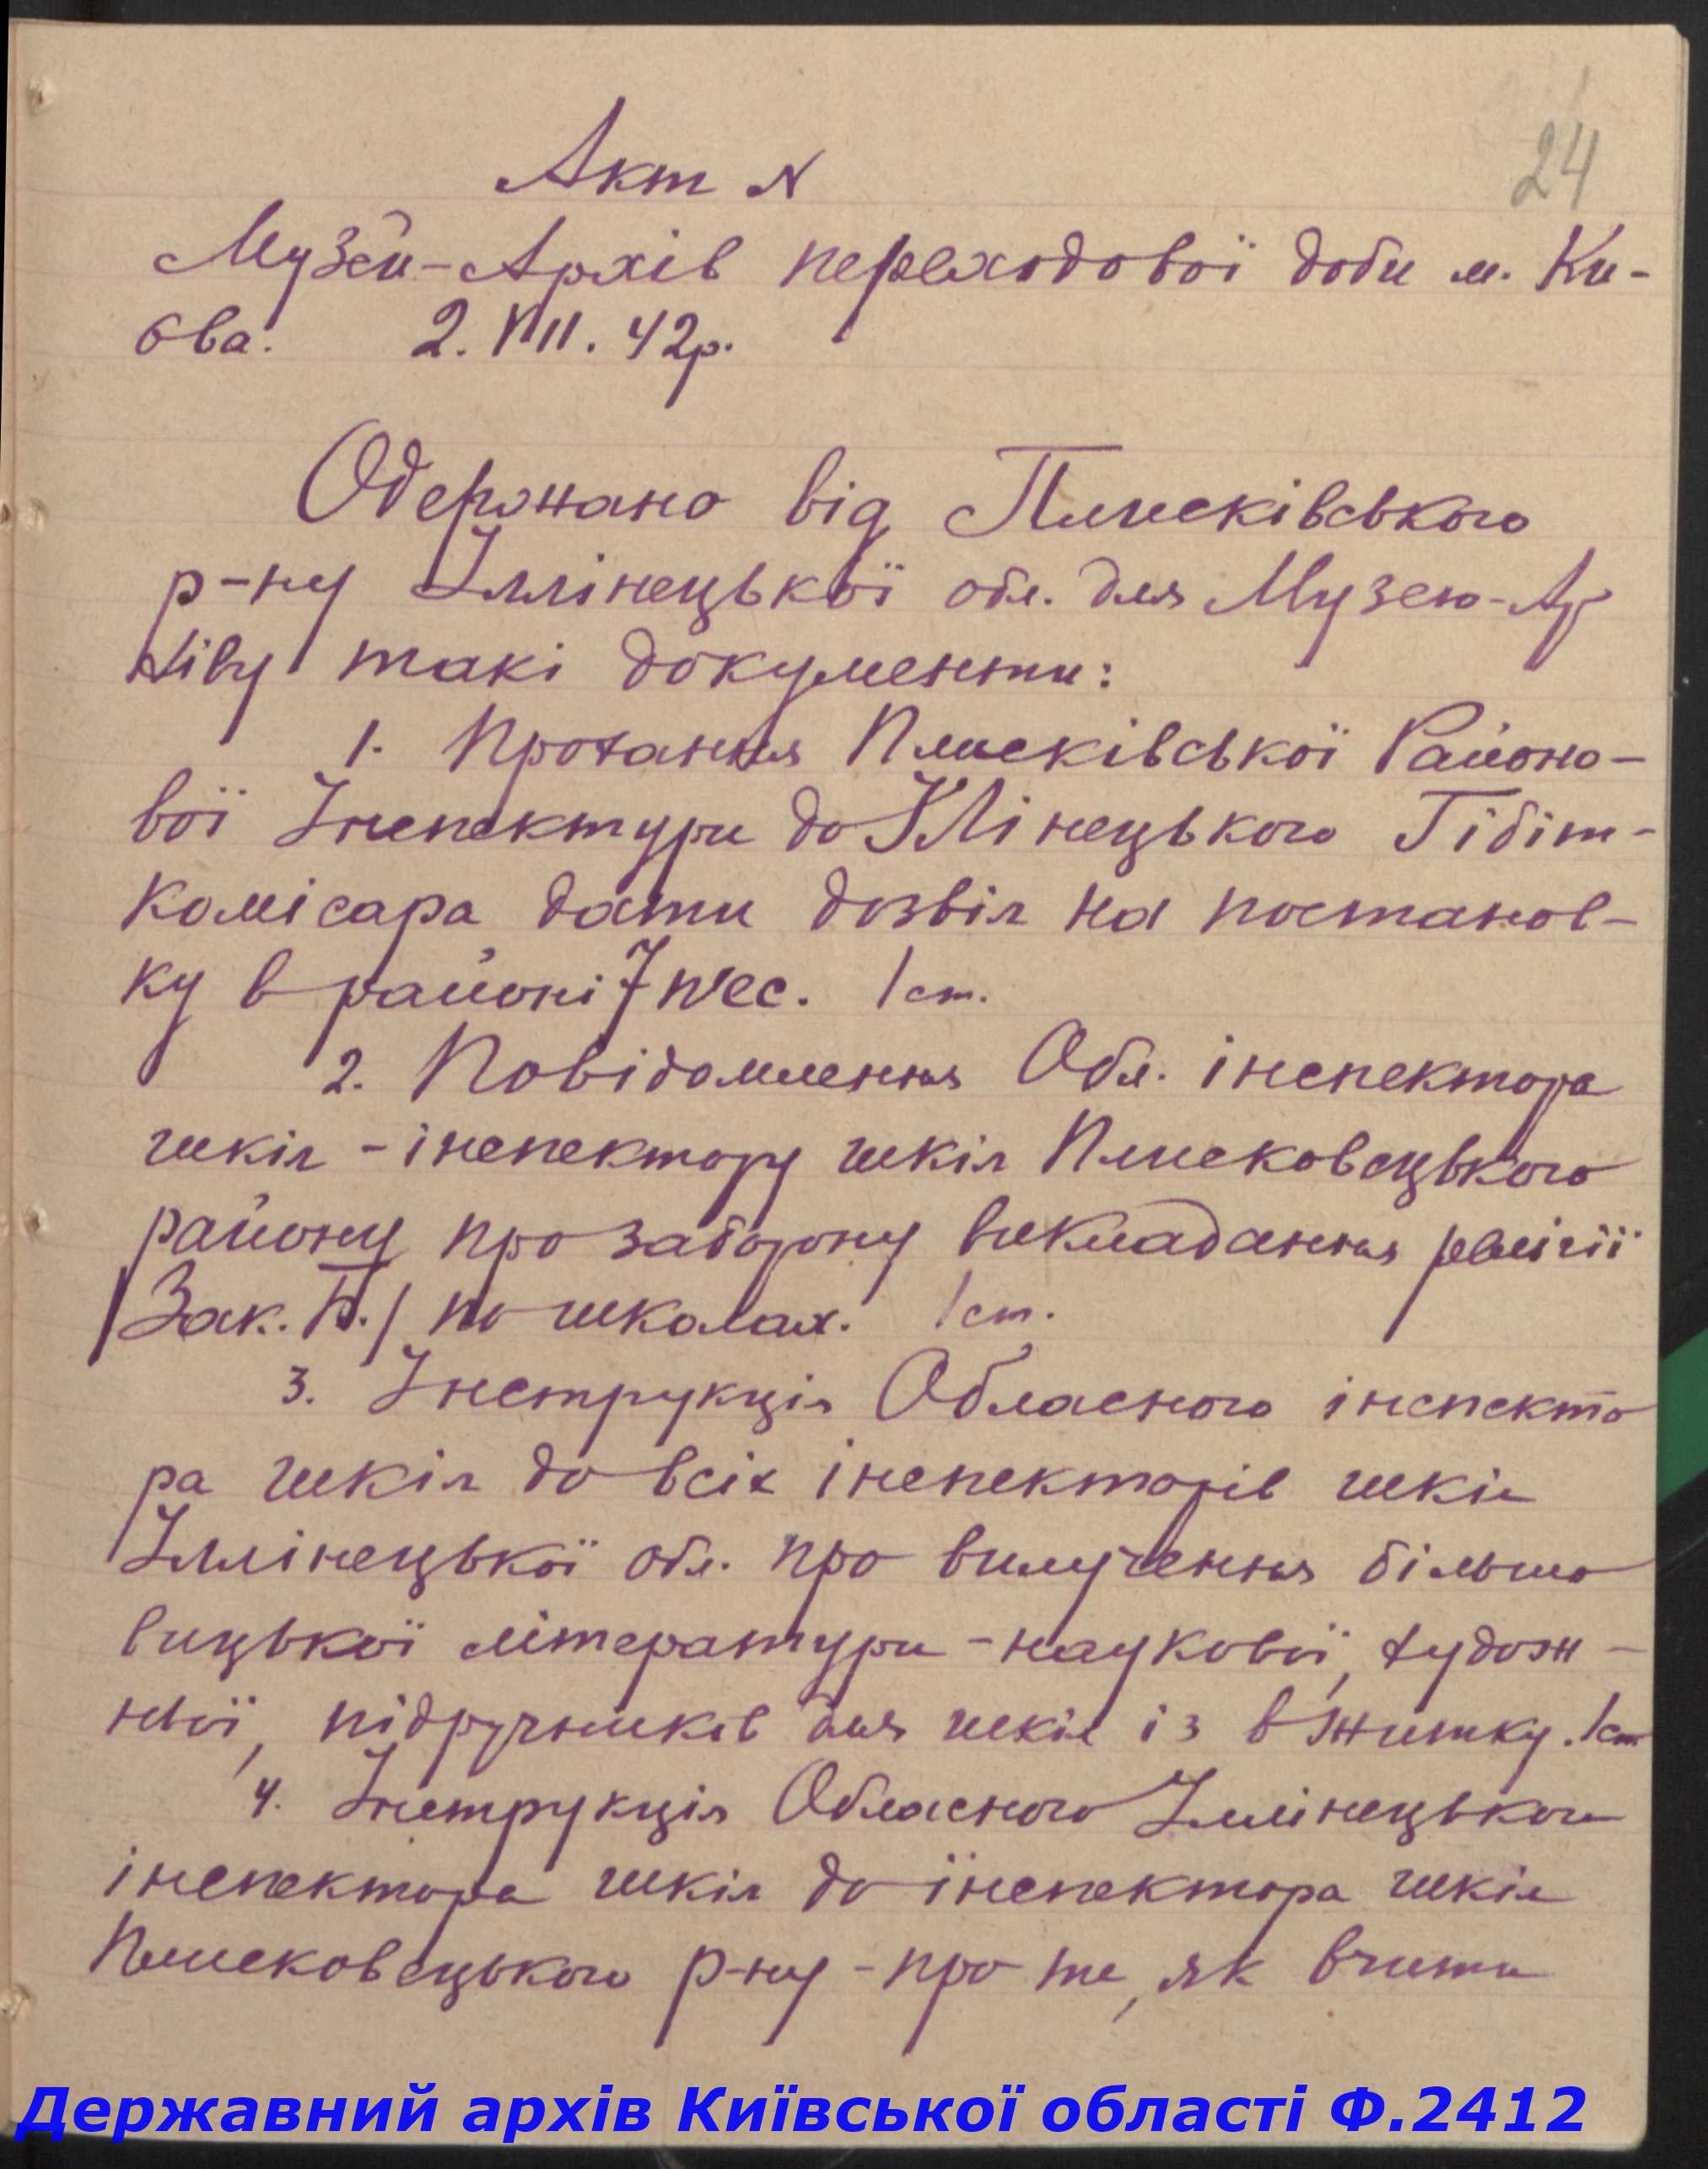 24
Акт N
Музей-Архів переходової доби м. Ки-
єва. 2. VIII. 42р.
Одержано від Плисківського
р-ну Іллінецької обл. для Музею-Ар
хіву такі документи:
1. Прохання Плисківської Районо-
вої Інспектури до Іллінецького Гібіт-
комісара дати дозвіл на постанов-
ку в районі 7 п'єс. 1 ст.
2. Повідомлення Обл. інспектора
шкіл - інспектору шкіл Плисковецького
району про заборону викладання релігії
/Зак. Б./ по школах. 1 ст.
3. Інструкція Обласного інспекто
ра шкіл до всіх інспекторів шкіл
Іллінецької обл. про вилучення більшо
вицької літератури - наукової, худож-
ньої, підручників для шкіл із вжитку. 1 ст.
4. Інструкція Обласного Іллінецького
інспектора шкіл до інспектора шкіл
Плисковецького р-ну - про те, як вчити
Державний архів Київської області Ф.2412